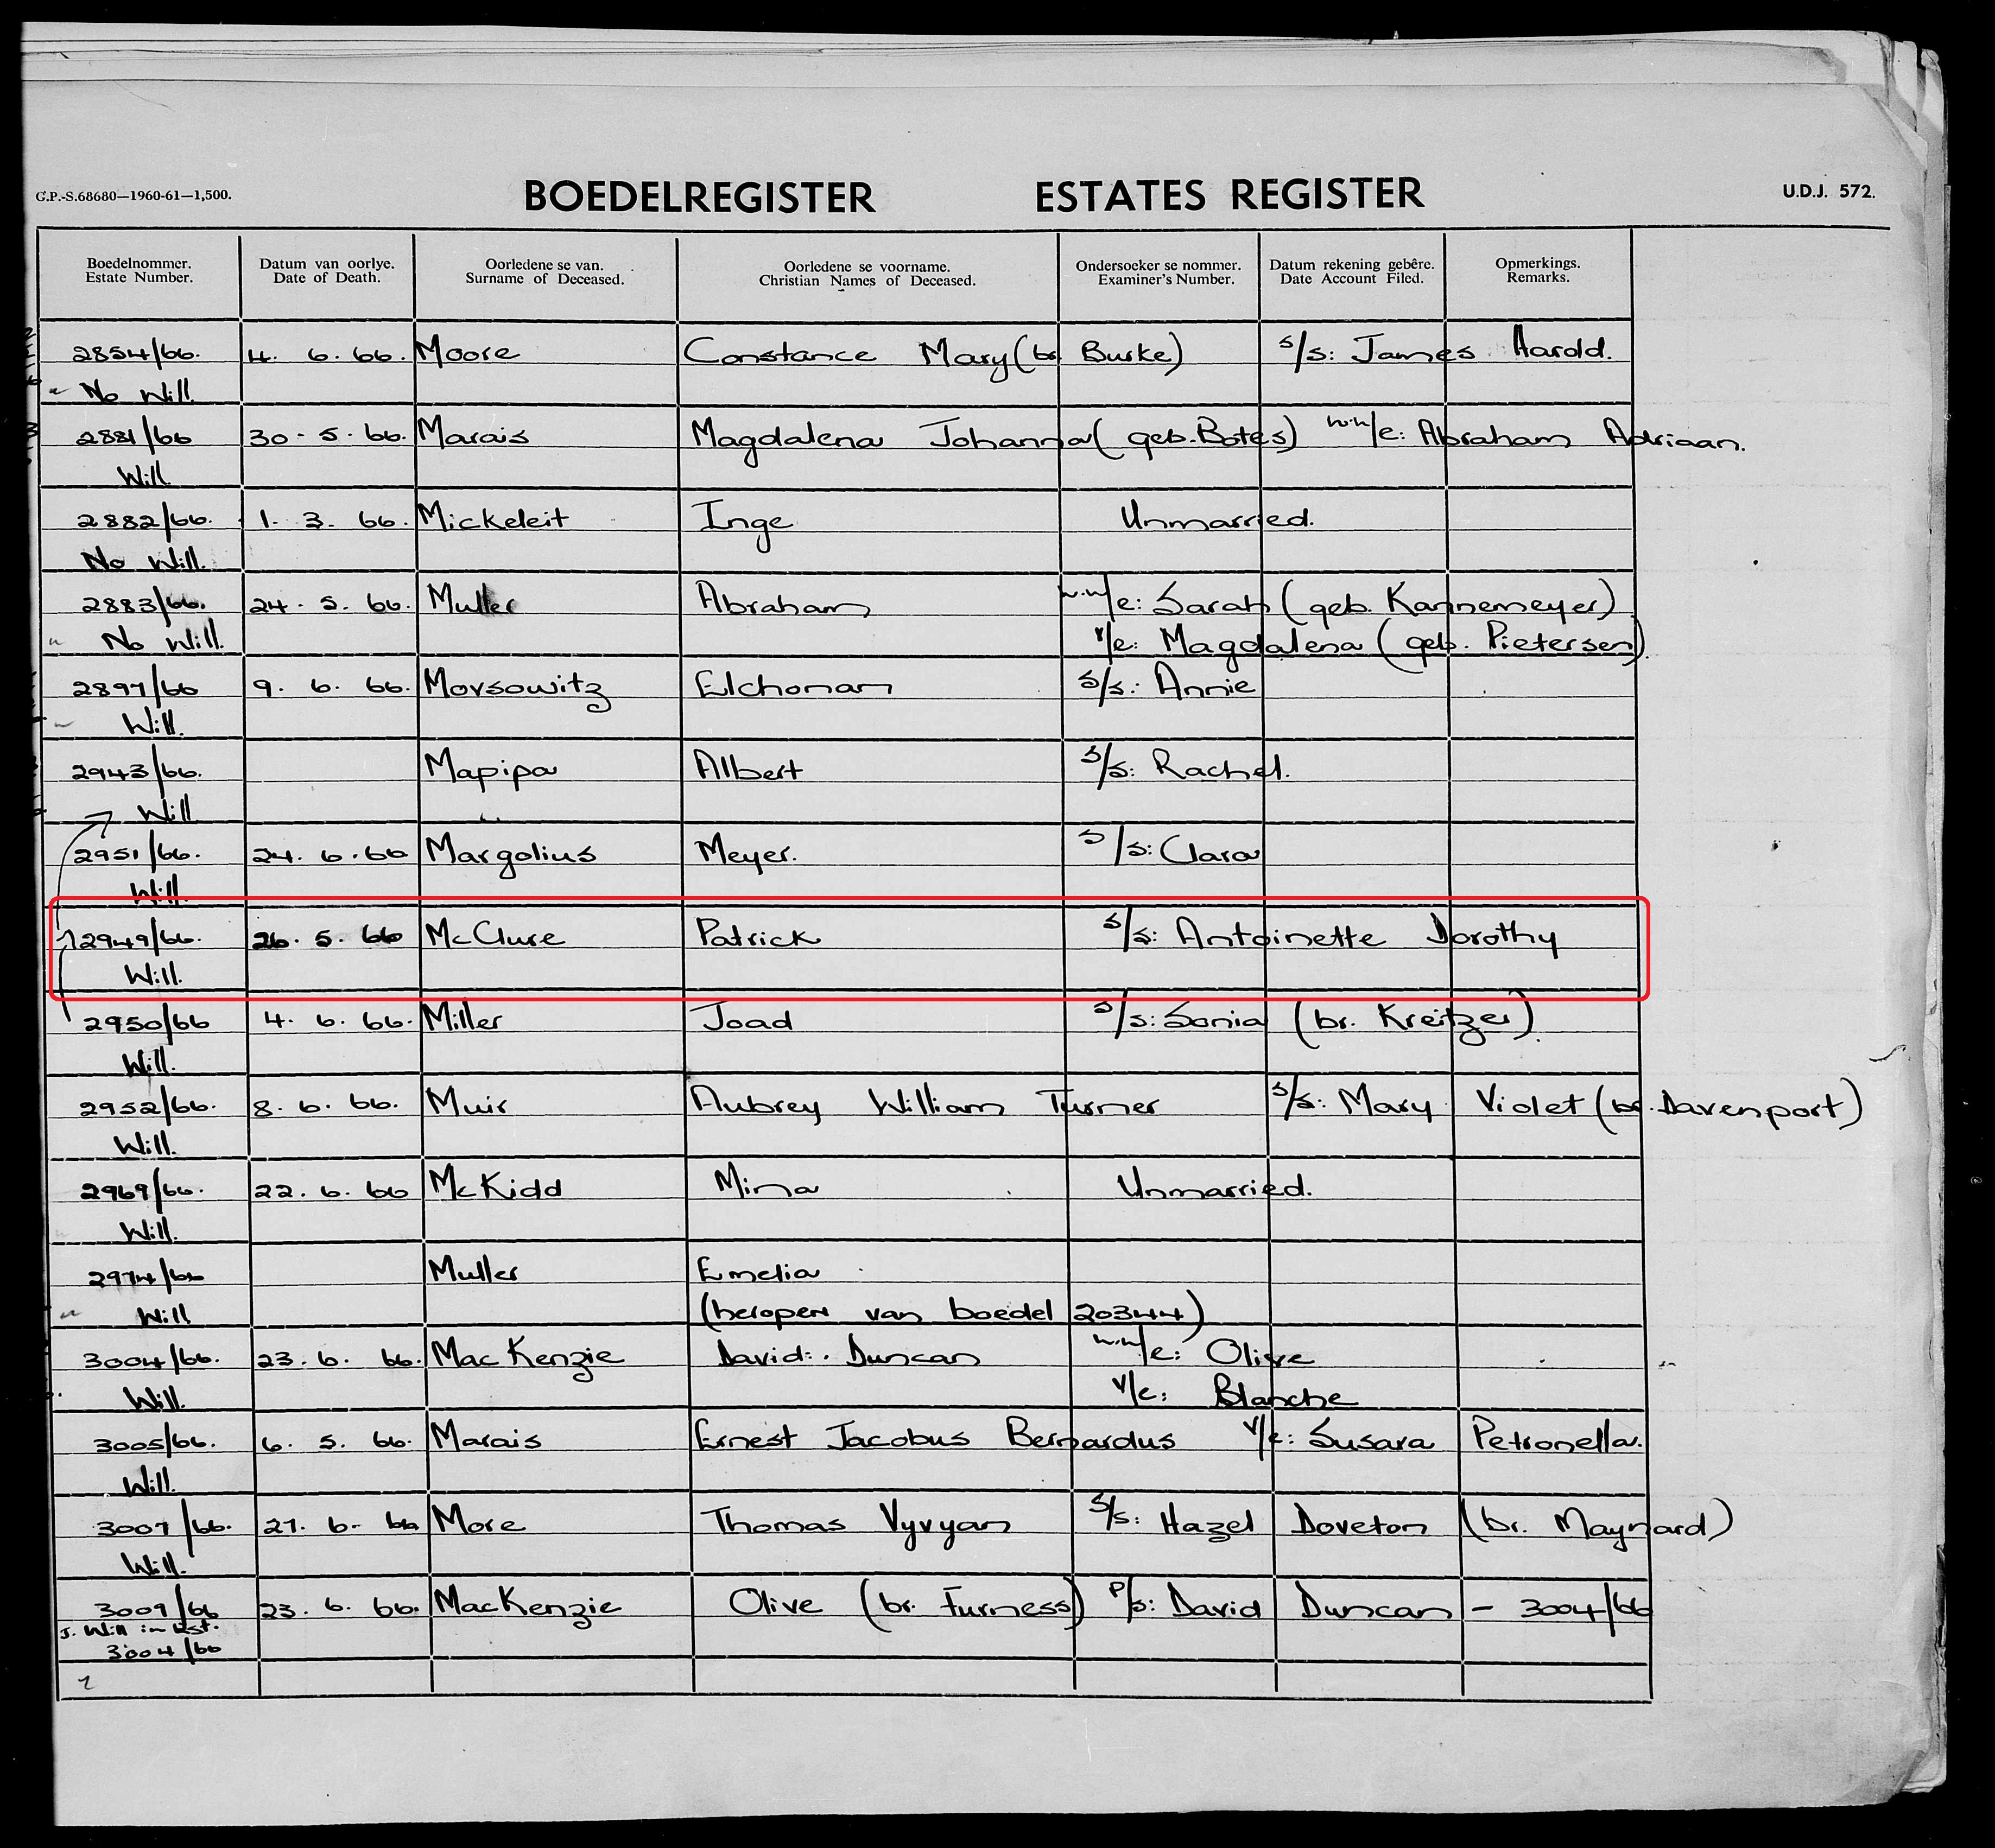 G.P.-S.68680—1960-61—1,500. BOEDELREGISTER ESTATES REGISTER U.D.J. 572.
Boedelnommer. Datum van oorlye. Oorledene se van. Oorledene se voorname. Ondersoeker se nommer. Datum rekening gebêre. Opmerkings.
Estate Number. Date of Death. Surname of Deceased. Christian Names of Deceased. Examiner's Number. Date Account Filed. Remarks.
2854/66. 4. 6. 66. Moore Constance Mary (br Burke) s/s: James Harold.
No Will
2881/66 30. 5. 66. Marais Magdalena Johanna (geb. Botes) w.w/e: Abraham Adriaan.
Will
2882/66. 1. 3. 66. Mickeleit Inge Unmarried.
No Will.
2883/66. 24. 5. 66. Muller Abraham w.w/e: Sarah (geb. Kannemeyer)
No Will. v/e: Magdalena (geb. Pietersen)
2897/66 9. 6. 66. Movsowitz Elchonan s/s: Annie
Will.
2943/66. Mapipa Albert s/s: Rachel.
Will
2951/66. 24. 6. 66 Margolius Meyer. s/s: Clara
Will.
2949/66. 26. 5. 66 McClure Patrick s/s: Antoinette Dorothy
Will.
2950/66 4. 6. 66. Miller Joad s/s: Sonia (br. Kreitzer).
Will.
2952/66. 8. 6. 66. Muir Aubrey William Turner s/s: Mary Violet (br. Davenport)
Will.
2969/66. 22. 6. 66 McKidd Mina Unmarried.
Will.
2974/66 Muller Emelia
Will (heropen van boedel 20344)
3004/66. 23. 6. 66. MacKenzie David Duncan w.w/e: Olive
Will. v/e: Blanche
3005/66. 6. 5. 66. Marais Ernest Jacobus Bernardus v/e: Susara Petronella.
Will.
3007/66. 27. 6. 66 More Thomas Vyvyan s/s: Hazel Doveton (br. Maynard)
Will.
3009/66 23. 6. 66. MacKenzie Olive (br. Furness) p/s: David Duncan – 3004/66
J. Will in Est.
3004/66